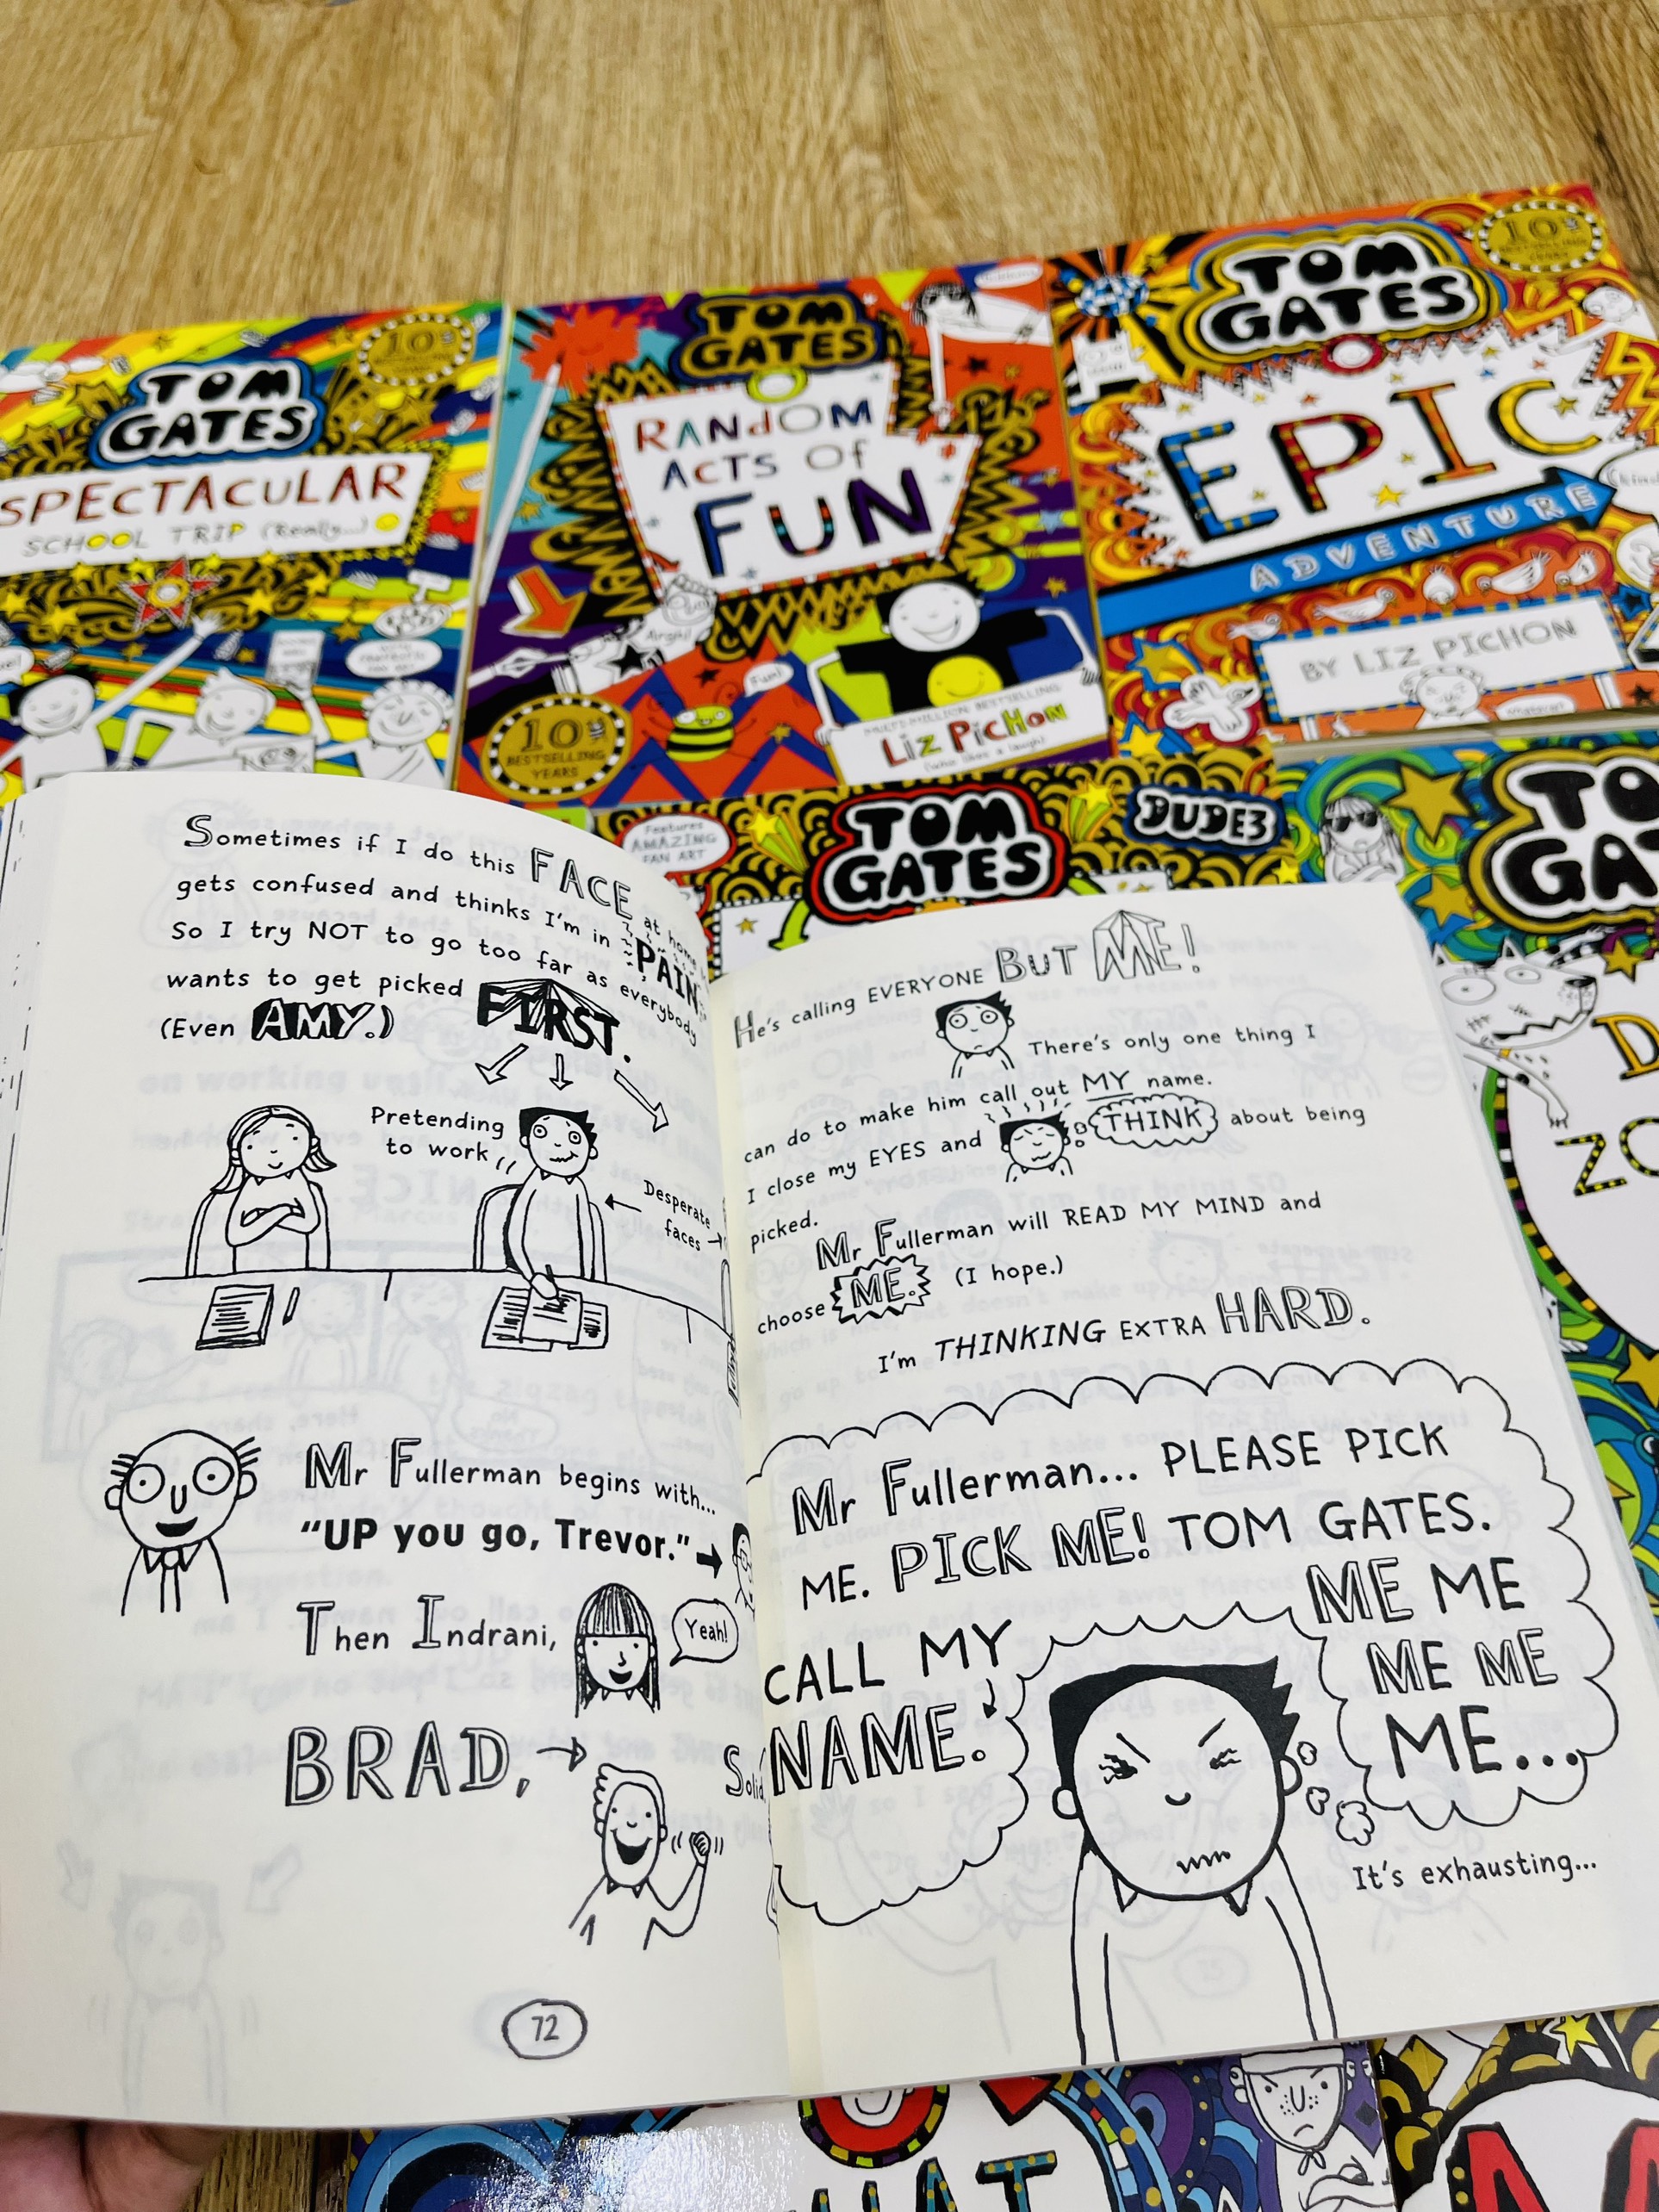 10
TOM
GATES
SPECTACULAR
SCHOOL TRIP (Really...)
TOM
GATES
RANdOM
ACTS Of
FUN
Fun!
10
BESTSELLING
YEARS
MULTI-MILLION BESTSELLING
Liz PicHon
(who likes a laugh)
10
TOM
GATES
EPIC
ADVENTURE
BY LIZ PICHON
Features
AMAZING
FAN ART
TOM
GATES
DUDE3
TO
GA
D
ZO
Sometimes if I do this FACE at home
gets confused and thinks I'm in PAIN
So I try NOT to go too far as everybody
wants to get picked FIRST.
(Even AMY.)
Pretending
to work
Desperate
faces
Mr Fullerman begins with...
"UP you go, Trevor."
Then Indrani,
Yeah!
BRAD,
Solid
72
He's calling EVERYONE BUT ME!
There's only one thing I
can do to make him call out MY name.
I close my EYES and THINK about being
picked.
Mr Fullerman will READ MY MIND and
choose ME. (I hope.)
I'm THINKING EXTRA HARD.
Mr Fullerman... PLEASE PICK
ME. PICK ME! TOM GATES.
CALL MY
NAME.
ME ME
ME ME
ME...
It's exhausting...